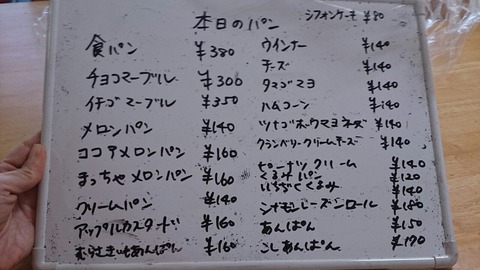 本日のパン
シフォンケーキ ¥80
食パン ¥380
チョコマーブル ¥300
イチゴマーブル ¥350
メロンパン ¥140
ココアメロンパン ¥160
まっちゃメロンパン ¥160
クリームパン ¥140
アップルカスタード ¥160
むらさきいもあんぱん ¥160
ウインナー ¥140
チーズ ¥140
タマゴマヨ ¥140
ハムコーン ¥140
ツナゴボウマヨネーズ ¥140
クランベリークリームチーズ ¥140
ピーナツクリーム ¥140
くるみパン ¥120
いちぢくくるみ ¥140
シナモンレーズンロール ¥180
あんぱん ¥150
こしあんぱん ¥170